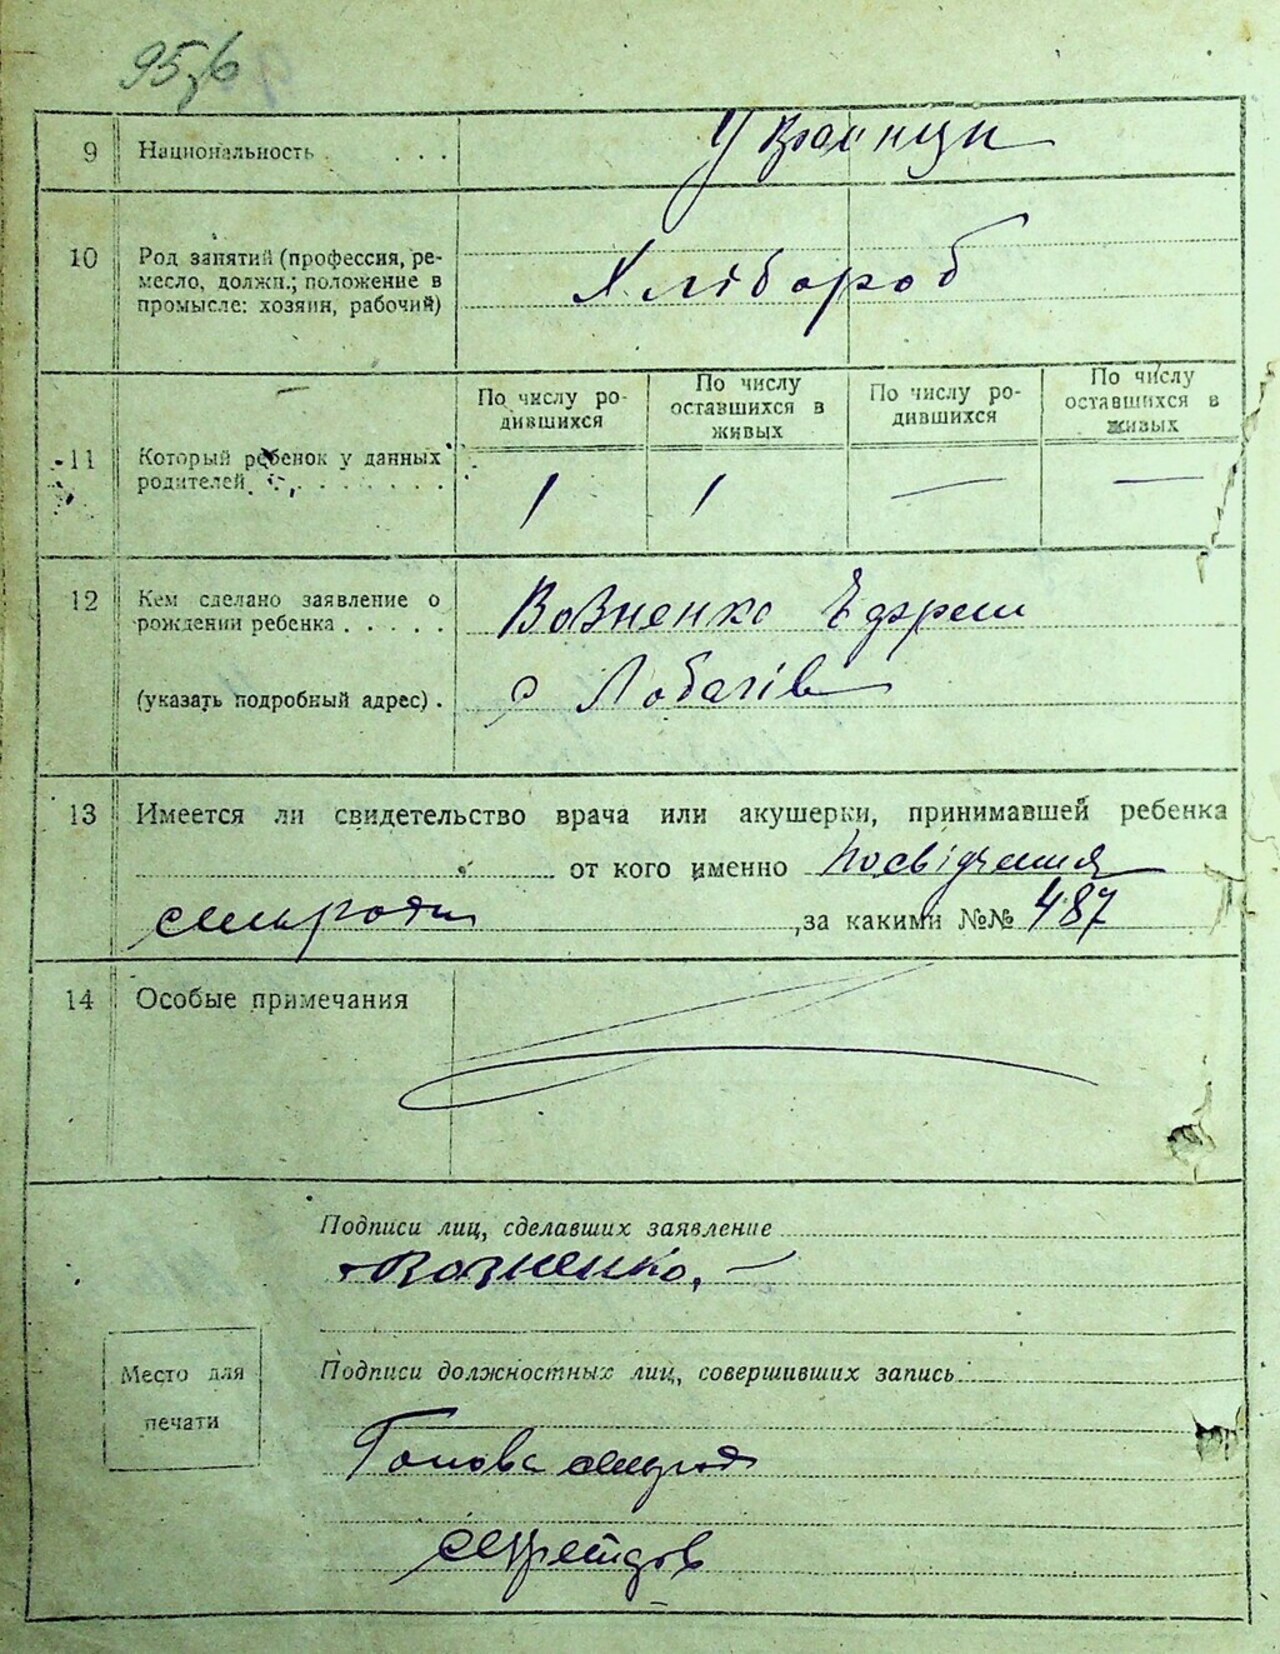 95,6
9 Национальность . . . . Українци
10 Род занятий (профессия, ре-
месло, должн.; положение в
промысле: хозяин, рабочий)
Хлібороб
По числу ро-
дившихся
По числу
оставшихся в
живых
По числу ро-
дившихся
По числу
оставшихся в
живых
11 Который ребенок у данных
родителей . . . . . . . .
1 1 — —
12 Кем сделано заявление о
рождении ребенка . . . . .
Возненко Ефрем
(указать подробный адрес) .
с Лобачів
13 Имеется ли свидетельство врача или акушерки, принимавшей ребенка
от кого именно Посвідчення
сильради ,за какими №№ 487
14 Особые примечания
Подписи лиц, сделавших заявление
Возненко, —
Место для
печати
Подписи должностных лиц, совершивших запись
Голова сильрад